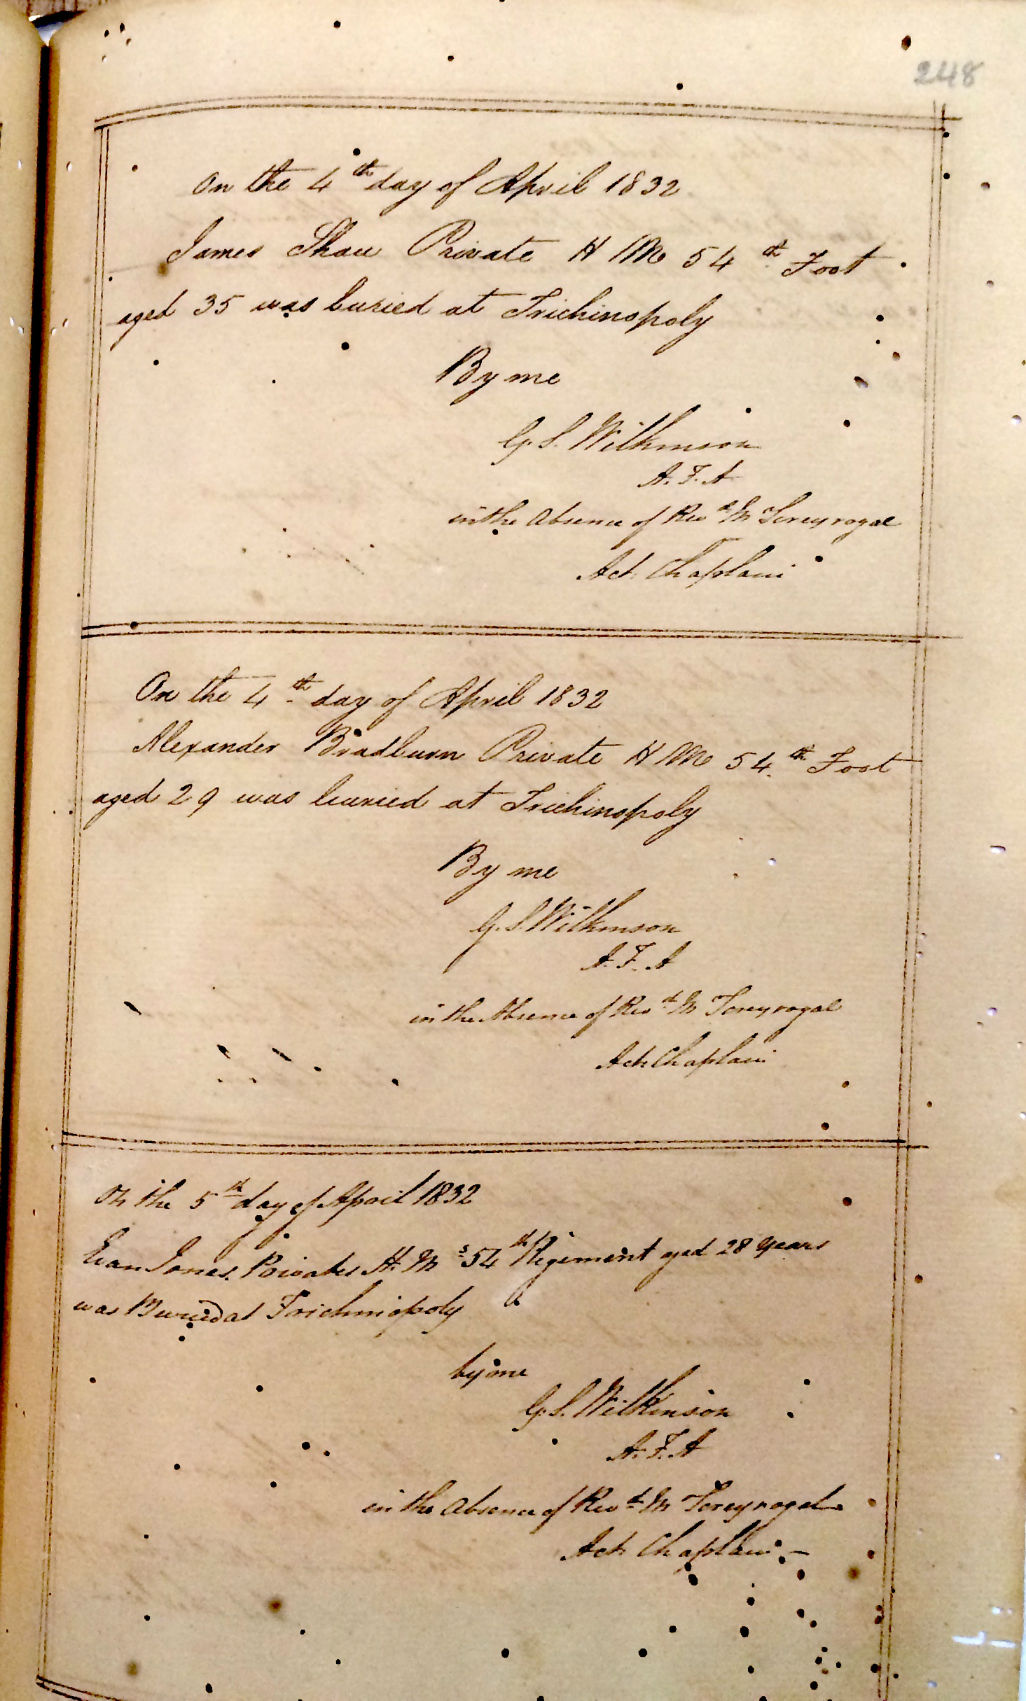 248
On the 4th day of April 1832
James Shaw Private H M 54th Foot
aged 35 was buried at Trichinopoly
By me
G. S. Wilkinson
A. F. A
in the Absence of Revd Mr
Act. Chaplain
On the 4th day of April 1832
Alexander Bradburn Private H M 54th Foot
aged 29 was buried at Trichinopoly
By me
G. S. Wilkinson
A. F. A
in the Absence of Revd Mr
Act Chaplain
On the 5th day of April 1832
Evan Jones Private H. Ms 54th Regiment aged 28 years
was Buried at Trichinopoly
by me
G. S. Wilkinson
A. F. A
in the Absence of Revd Mr
Act Chaplain